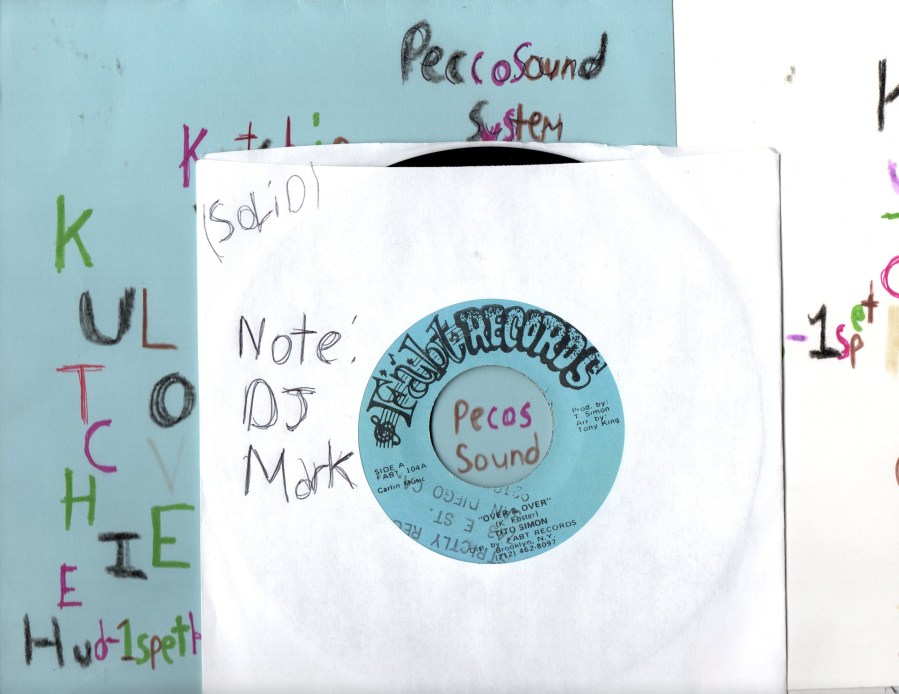 PeccoSound
System
(SOLiD)
K
U
T
C
H
I
E
L
O
V
E
Hud-1speth
Note:
DJ
Mark
Fabt RECORDS
Pecos
Sound
Prod. by:
T. Simon
Arr. by:
Tony King
SIDE A
FABT 104A
Carlin Music
"OVER & OVER"
(K. Foster)
TITO SIMON
by FABT RECORDS
Brooklyn, N.Y.
(212) 462-8097
E ST.
DIEGO CA
-1spet